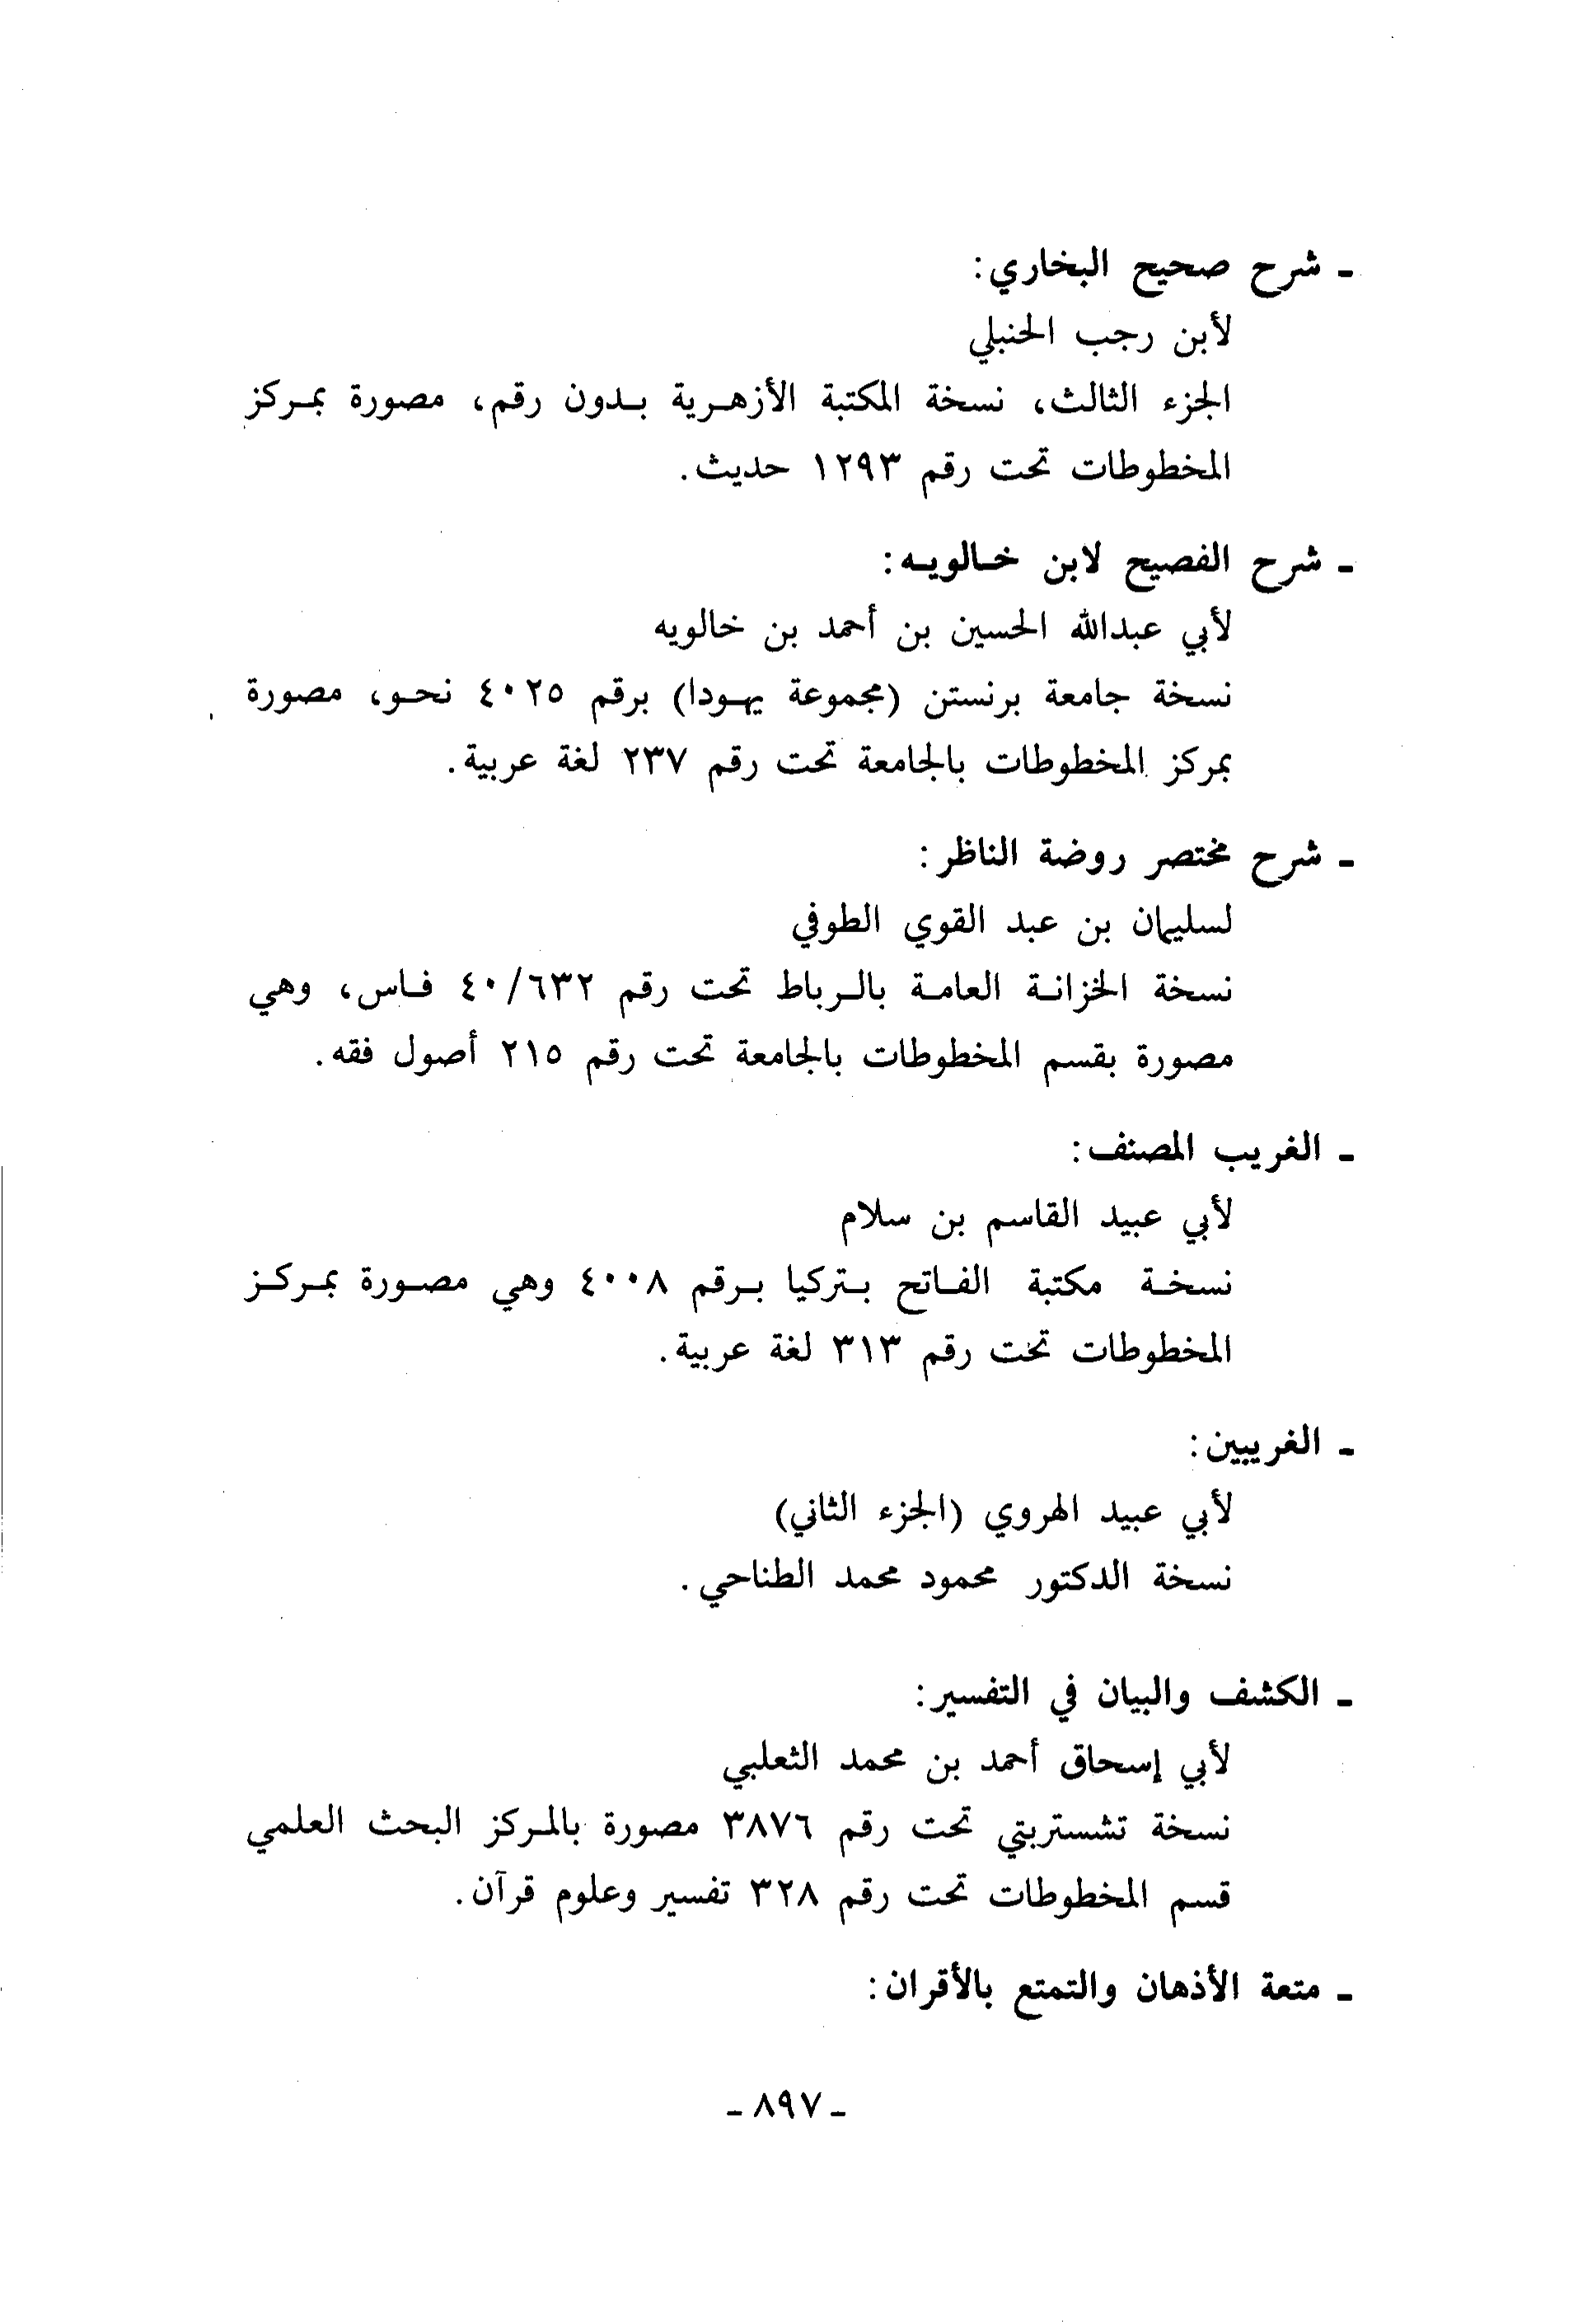 ـ شرح صحيح البخاري:
لأبن رجب الحنبلي
الجزء الثالث، نسخة المكتبة الأزهـرية بـدون رقم، مصورة بمـركز
المخطوطات تحت رقم ١٢٩٣ حديث.
ـ شرح الفصيح لابن خـالويـه:
لأبي عبدالله الحسين بن أحمد بن خالويه
نسخة جامعة برنستن (مجموعة يهـودا) برقم ٤٠٢٥ نحـو، مصورة
بمركز المخطوطات بالجامعة تحت رقم ٢٣٧ لغة عربية.
ـ شرح مختصر روضة الناظر:
لسليمان بن عبد القوي الطوفي
نسخة الخزانـة العامـة بالـرباط تحت رقم ٤٠/٦٣٢ فـاس، وهي
مصورة بقسم المخطوطات بالجامعة تحت رقم ٢١٥ أصول فقه.
ـ الغريب المصنف:
لأبي عبيد القاسم بن سلام
نسخـة مكتبة الفـاتح بـتركيا بـرقم ٤٠٠٨ وهي مصـورة بمـركـز
المخطوطات تحت رقم ٣١٣ لغة عربية.
ـ الغريبين:
لأبي عبيد الهروي (الجزء الثاني)
نسخة الدكتور محمود محمد الطناحي.
ـ الكشف والبيان في التفسير:
لأبي إسحاق أحمد بن محمد الثعلبي
نسخة تشستربتي تحت رقم ٣٨٧٦ مصورة بالمـركز البحث العلمي
قسم المخطوطات تحت رقم ٣٢٨ تفسير وعلوم قرآن.
ـ متعة الأذهان والتمتع بالأقران:
ـ ٨٩٧ ـ